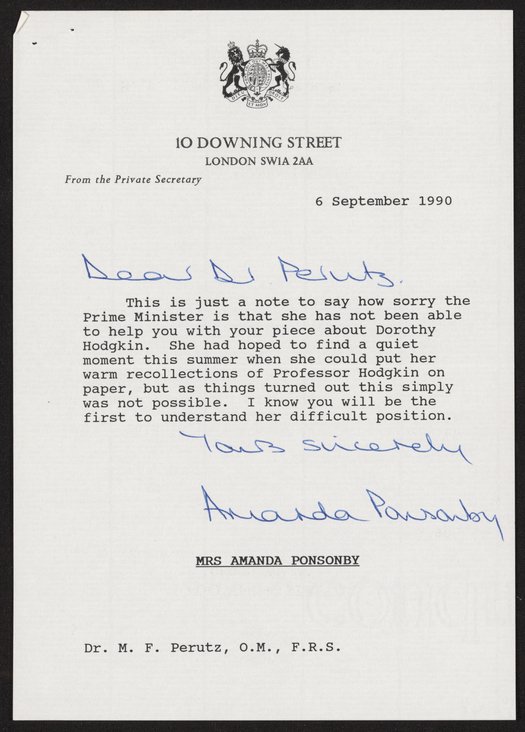 10 DOWNING STREET
LONDON SW1A 2AA
From the Private Secretary
6 September 1990
Dear Dr Perutz.
This is just a note to say how sorry the
Prime Minister is that she has not been able
to help you with your piece about Dorothy
Hodgkin. She had hoped to find a quiet
moment this summer when she could put her
warm recollections of Professor Hodgkin on
paper, but as things turned out this simply
was not possible. I know you will be the
first to understand her difficult position.
Yours sincerely
Amanda Ponsonby
MRS AMANDA PONSONBY
Dr. M. F. Perutz, O.M., F.R.S.